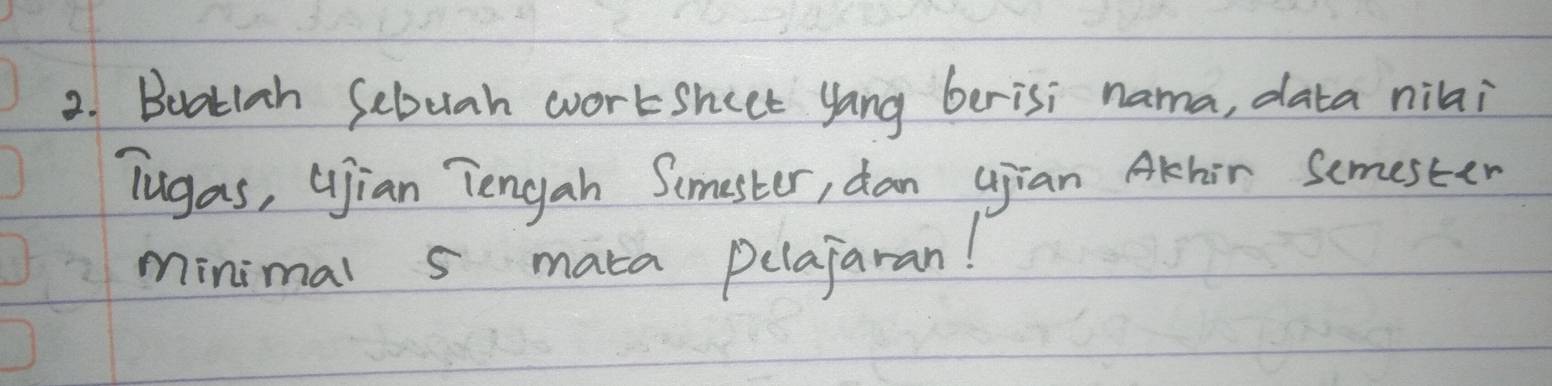 2. Buatlah sebuah worksheet yang berisi nama, data nilai
Tugas, Ujian Tengah Semester, dan ujian Akhir Semester
minimal 5 mata pelajaran!